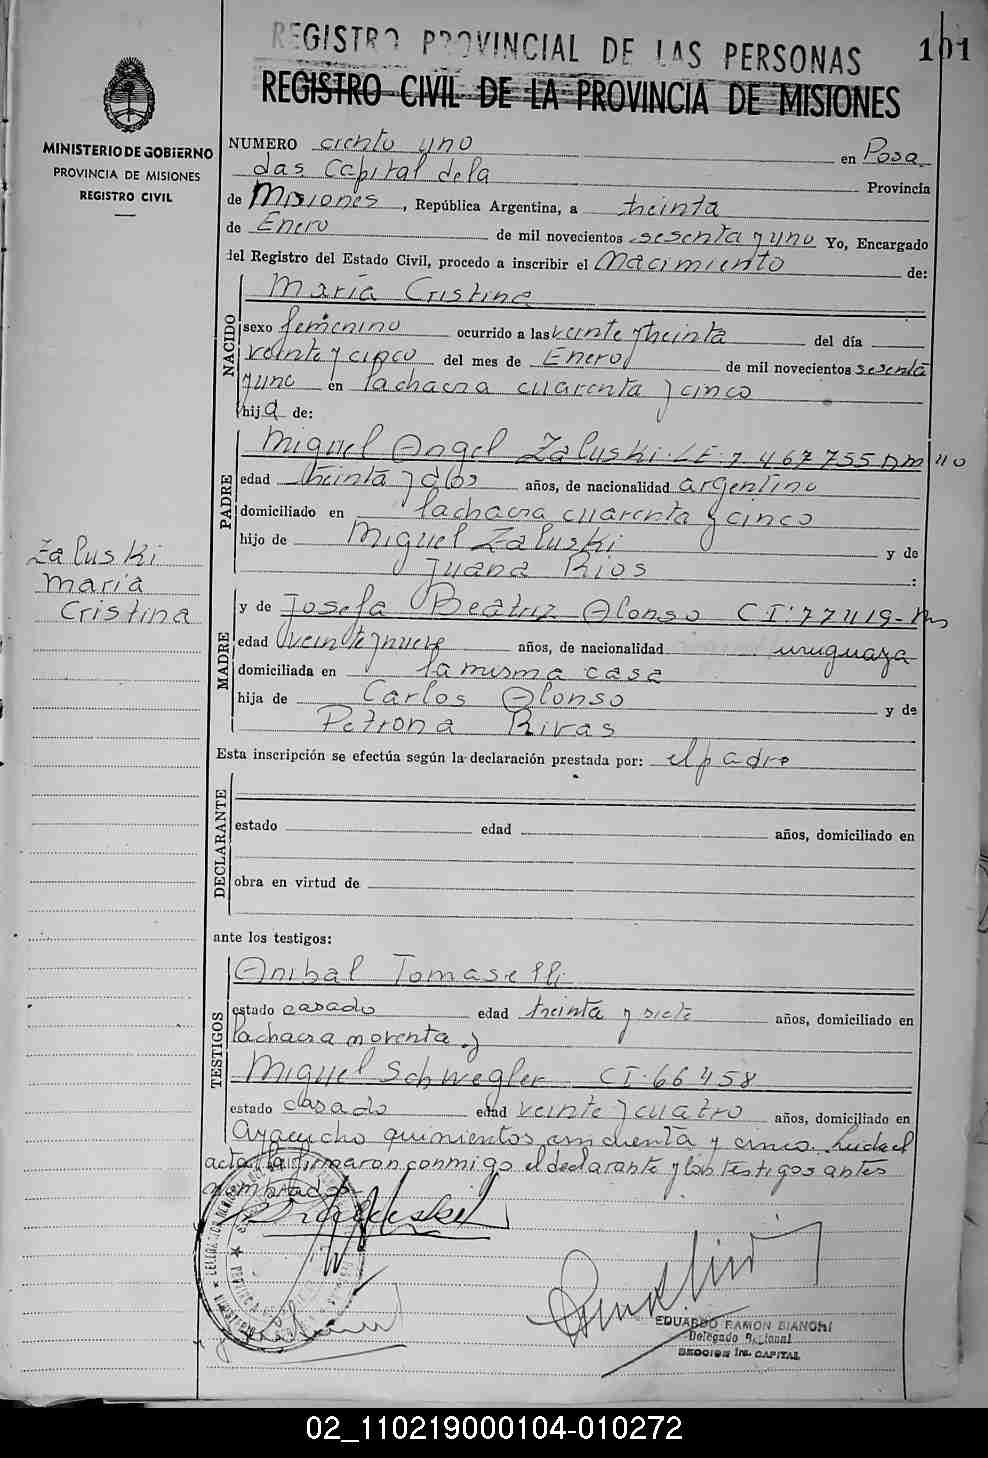 REGISTRO PROVINCIAL DE LAS PERSONAS
101
REGISTRO CIVIL DE LA PROVINCIA DE MISIONES
MINISTERIO DE GOBIERNO
PROVINCIA DE MISIONES
REGISTRO CIVIL
NUMERO ciento uno en Posa
das Capital dela Provincia
de Misiones, República Argentina, a treinta
de Enero de mil novecientos sesenta y uno Yo, Encargado
del Registro del Estado Civil, procedo a inscribir el Nacimiento de:
NACIDO
María Cristina
sexo femenino ocurrido a las veinte y treinta del día
veinte y cinco del mes de Enero de mil novecientos sesenta
y uno en la chacra cuarenta y cinco
hija de:
PADRE
Miguel Angel Zaluski. LE. 7.467.755 DM 110
edad treinta y dos años, de nacionalidad argentino
domiciliado en la chacra cuarenta y cinco
hijo de Miguel Zaluski y de
Juana Rios :
Zaluski
María
Cristina
MADRE
y de Josefa Beatriz Alonso CI: 77419-M
edad veinte y nueve años, de nacionalidad uruguaya
domiciliada en la misma casa
hija de Carlos Alonso y de
Petrona Rivas
Esta inscripción se efectúa según la declaración prestada por: el padre
DECLARANTE
estado edad años, domiciliado en
obra en virtud de
ante los testigos:
TESTIGOS
Anibal Tomaselli
estado casado edad treinta y siete años, domiciliado en
la chacra noventa y
Miguel Schwegler CI. 66458
estado casado edad veinte y cuatro años, domiciliado en
Ayacucho quinientos cincuenta y cinco. Leida el
acta, la firmaron conmigo el declarante y los testigos antes
nombrados
EDUARDO RAMON BIANCHI
Delegado Regional
SECCION 1ra. CAPITAL
02_110219000104-010272